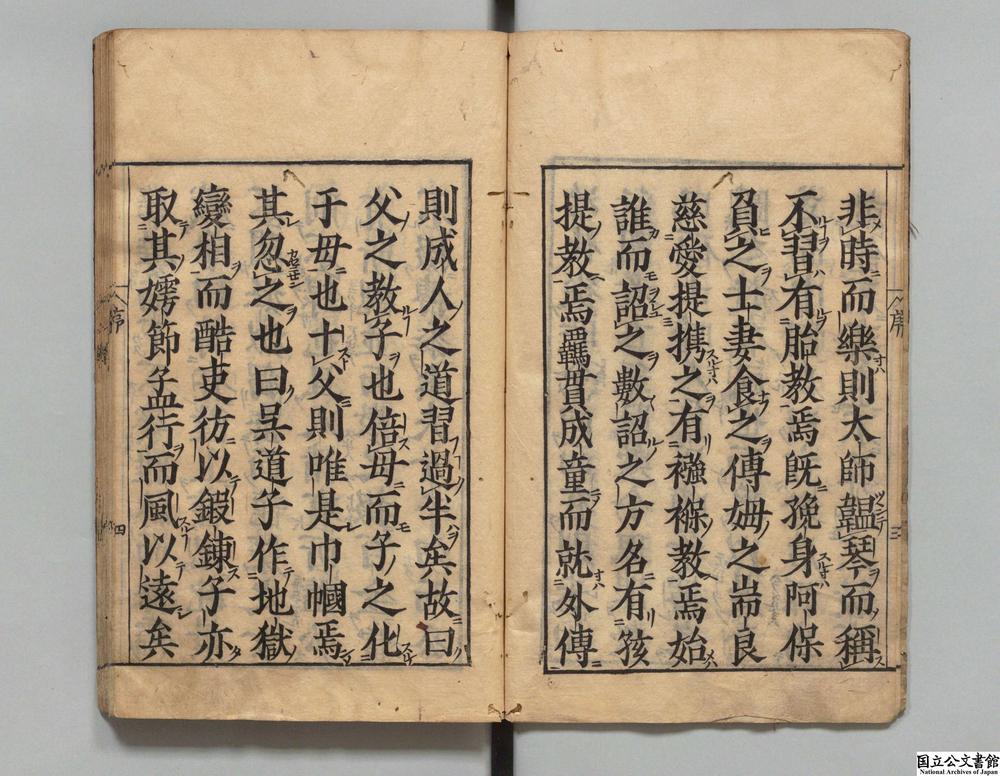 非時而樂則太師韞琴而稱
不習有胎教焉既娩身阿保
負之士妻食之傅姆之耑良
慈愛提携之有襁褓教焉始
誰而詔之數詔之方名有孩
提教焉羈貫成童而就外傅
序
三
則成人之道習過半矣故曰
父之教子也倍母而子之化
于母也十父則唯是巾幗焉
其忽之也曰吴道子作地獄
變相而酷吏彷以鍜錬子亦
取其嫮節孟行而風以遠矣
序
四
国立公文書館
National Archives of Japan